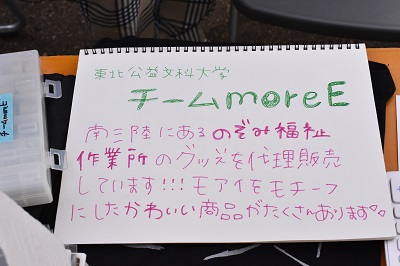 東北公益文科大学
チームmoreE
南三陸にあるのぞみ福祉
作業所のグッズを代理販売
しています!!!モアイをモチーフ
にしたかわいい商品がたくさんあります♡